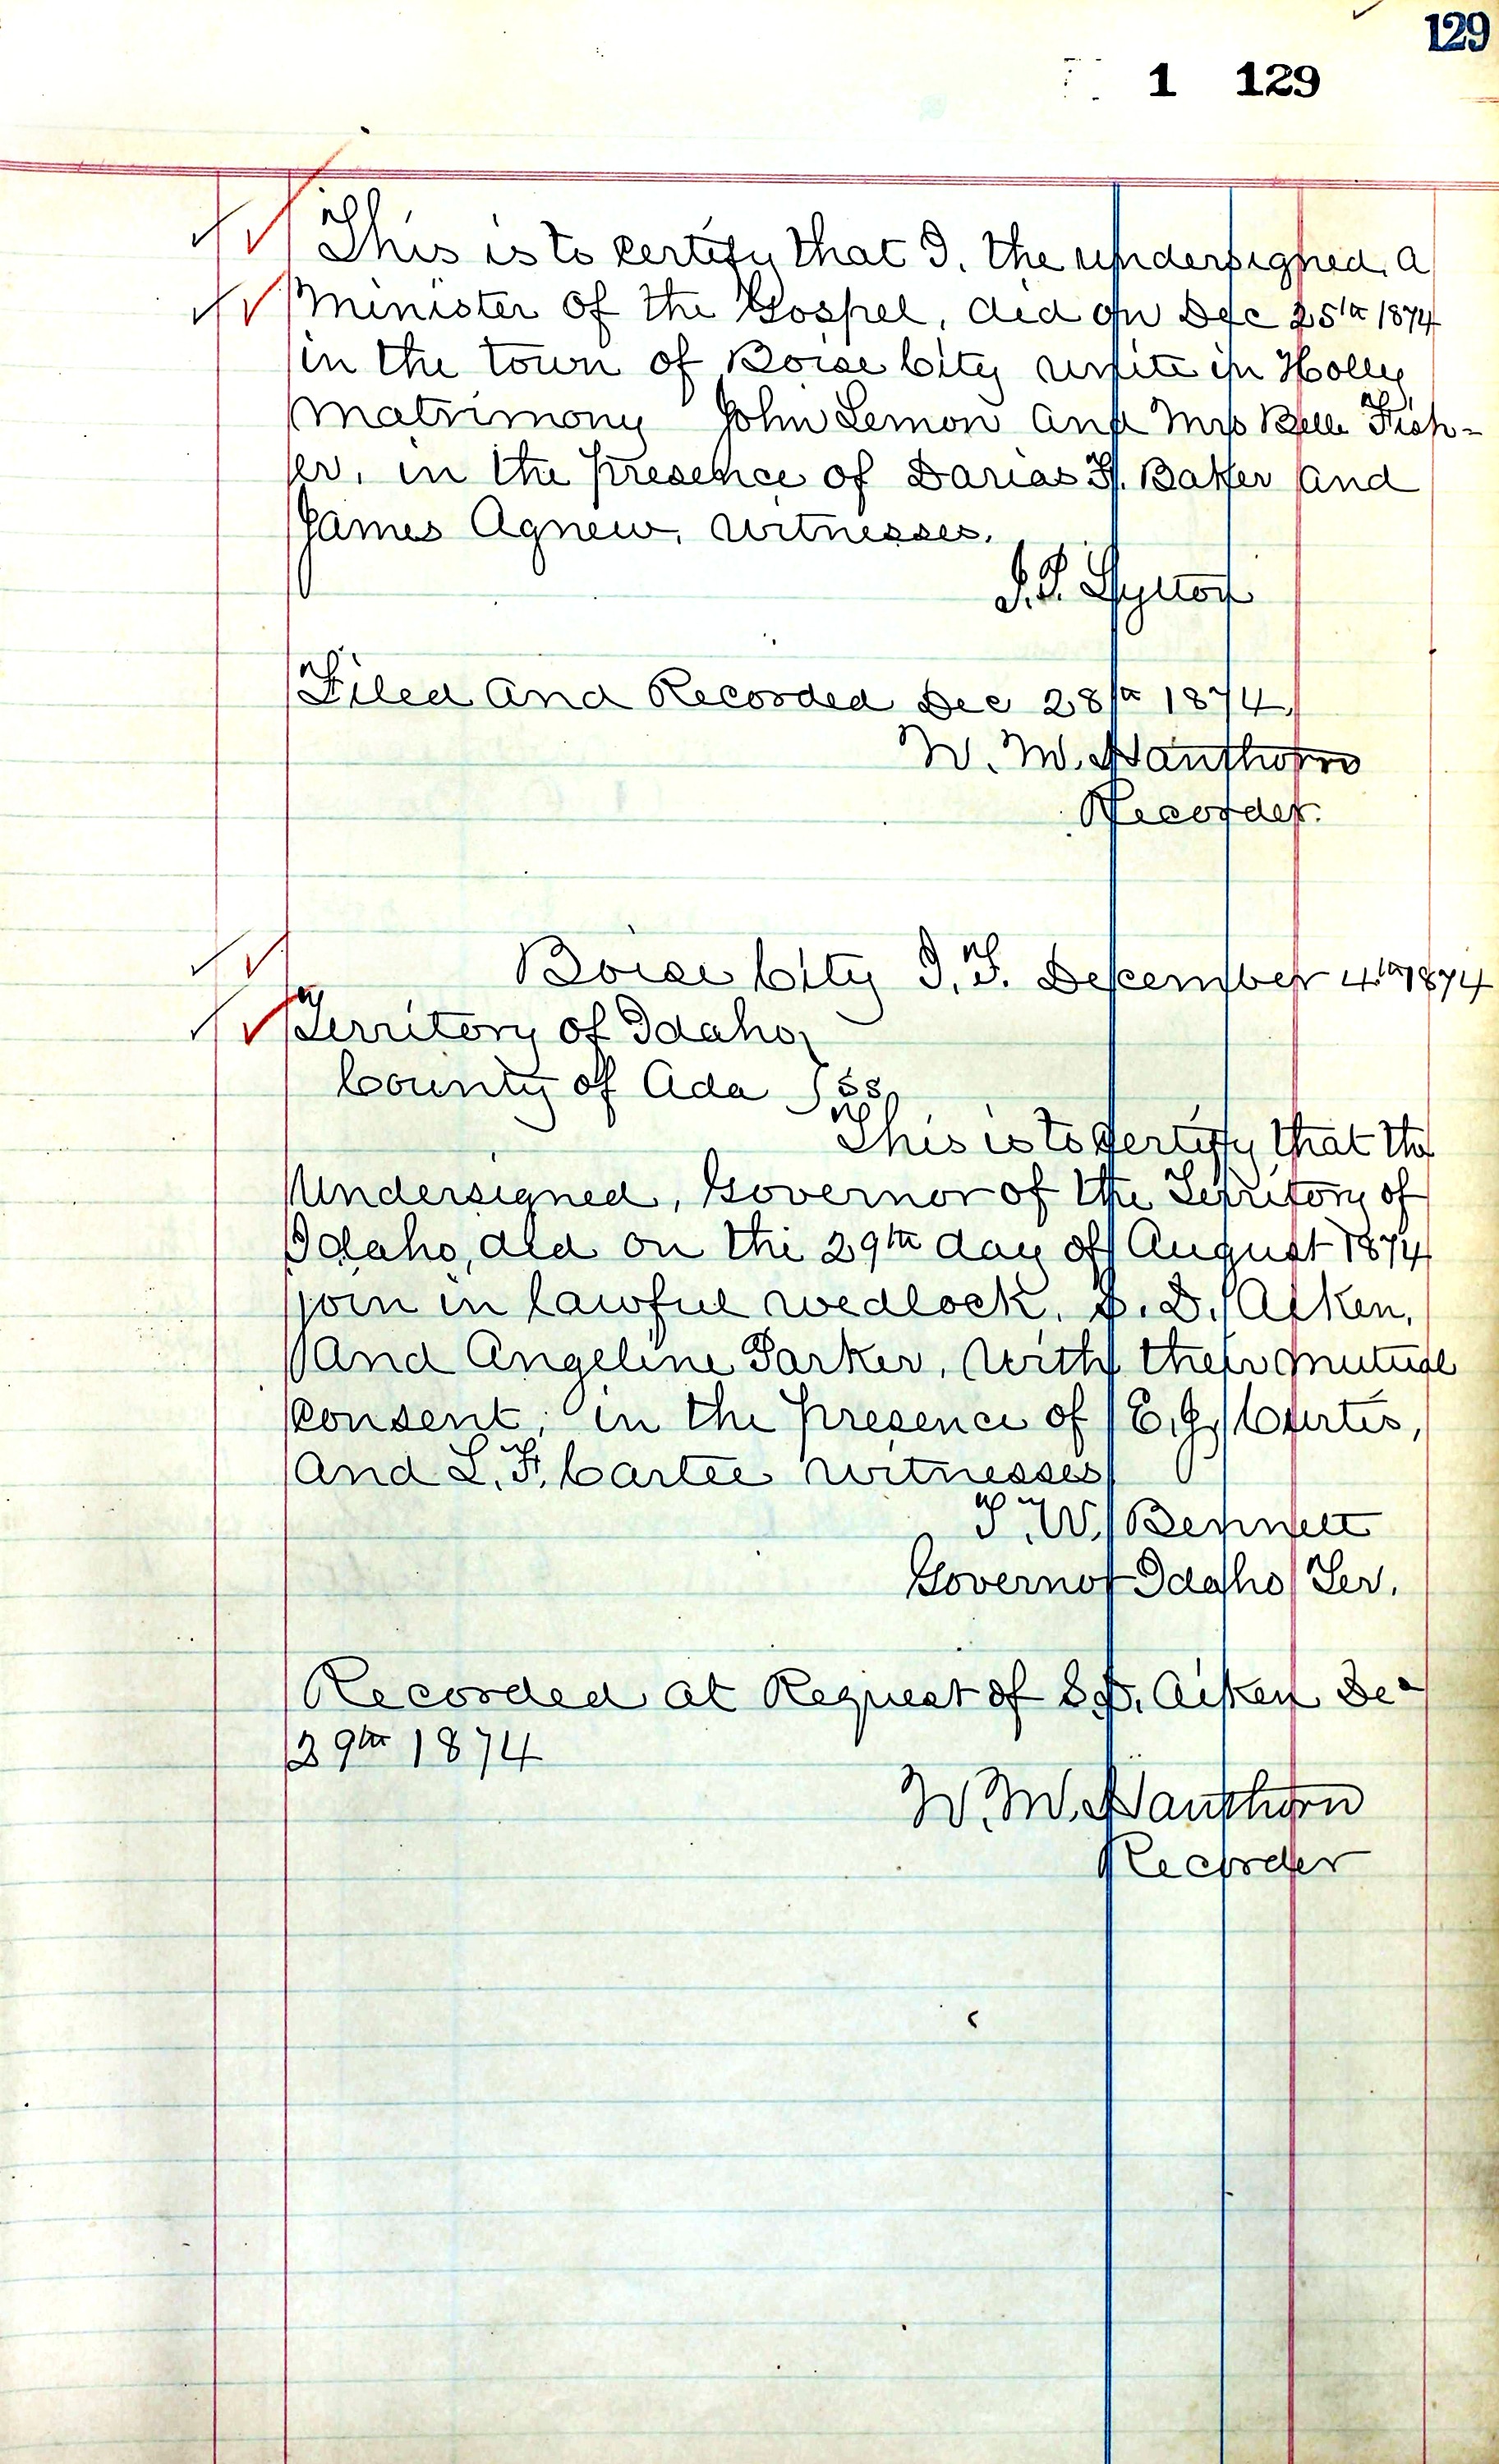 129
1 129
This is to certify that I, the undersigned, a
Minister of the Gospel, did on Dec 25th 1874
in the town of Boise City unite in Holly
Matrimony John Lemon and Mrs Belle Fish-
er, in the presence of Darias F. Baker and
James Agnew, Witnesses.
Filed and Recorded Dec 28th 1874,
W. M. Hawthorn
Recorder.
Boise City I.T. December 4th 1874
Territory of Idaho,
County of Ada } SS.
This is to Certify that the
Undersigned, Governor of the Territory of
Idaho, did on the 29th day of August 1874
join in lawful wedlock, S. D. Aiken,
And Angeline Parker, With their mutual
Consent, in the presence of E. J. Curtis,
And L. F. Cartee Witnesses
T. W. Bennett
Governor Idaho Ter.
Recorded at Request of S.D. Aiken Dec
29th 1874
W. M. Hawthorn
Recorder